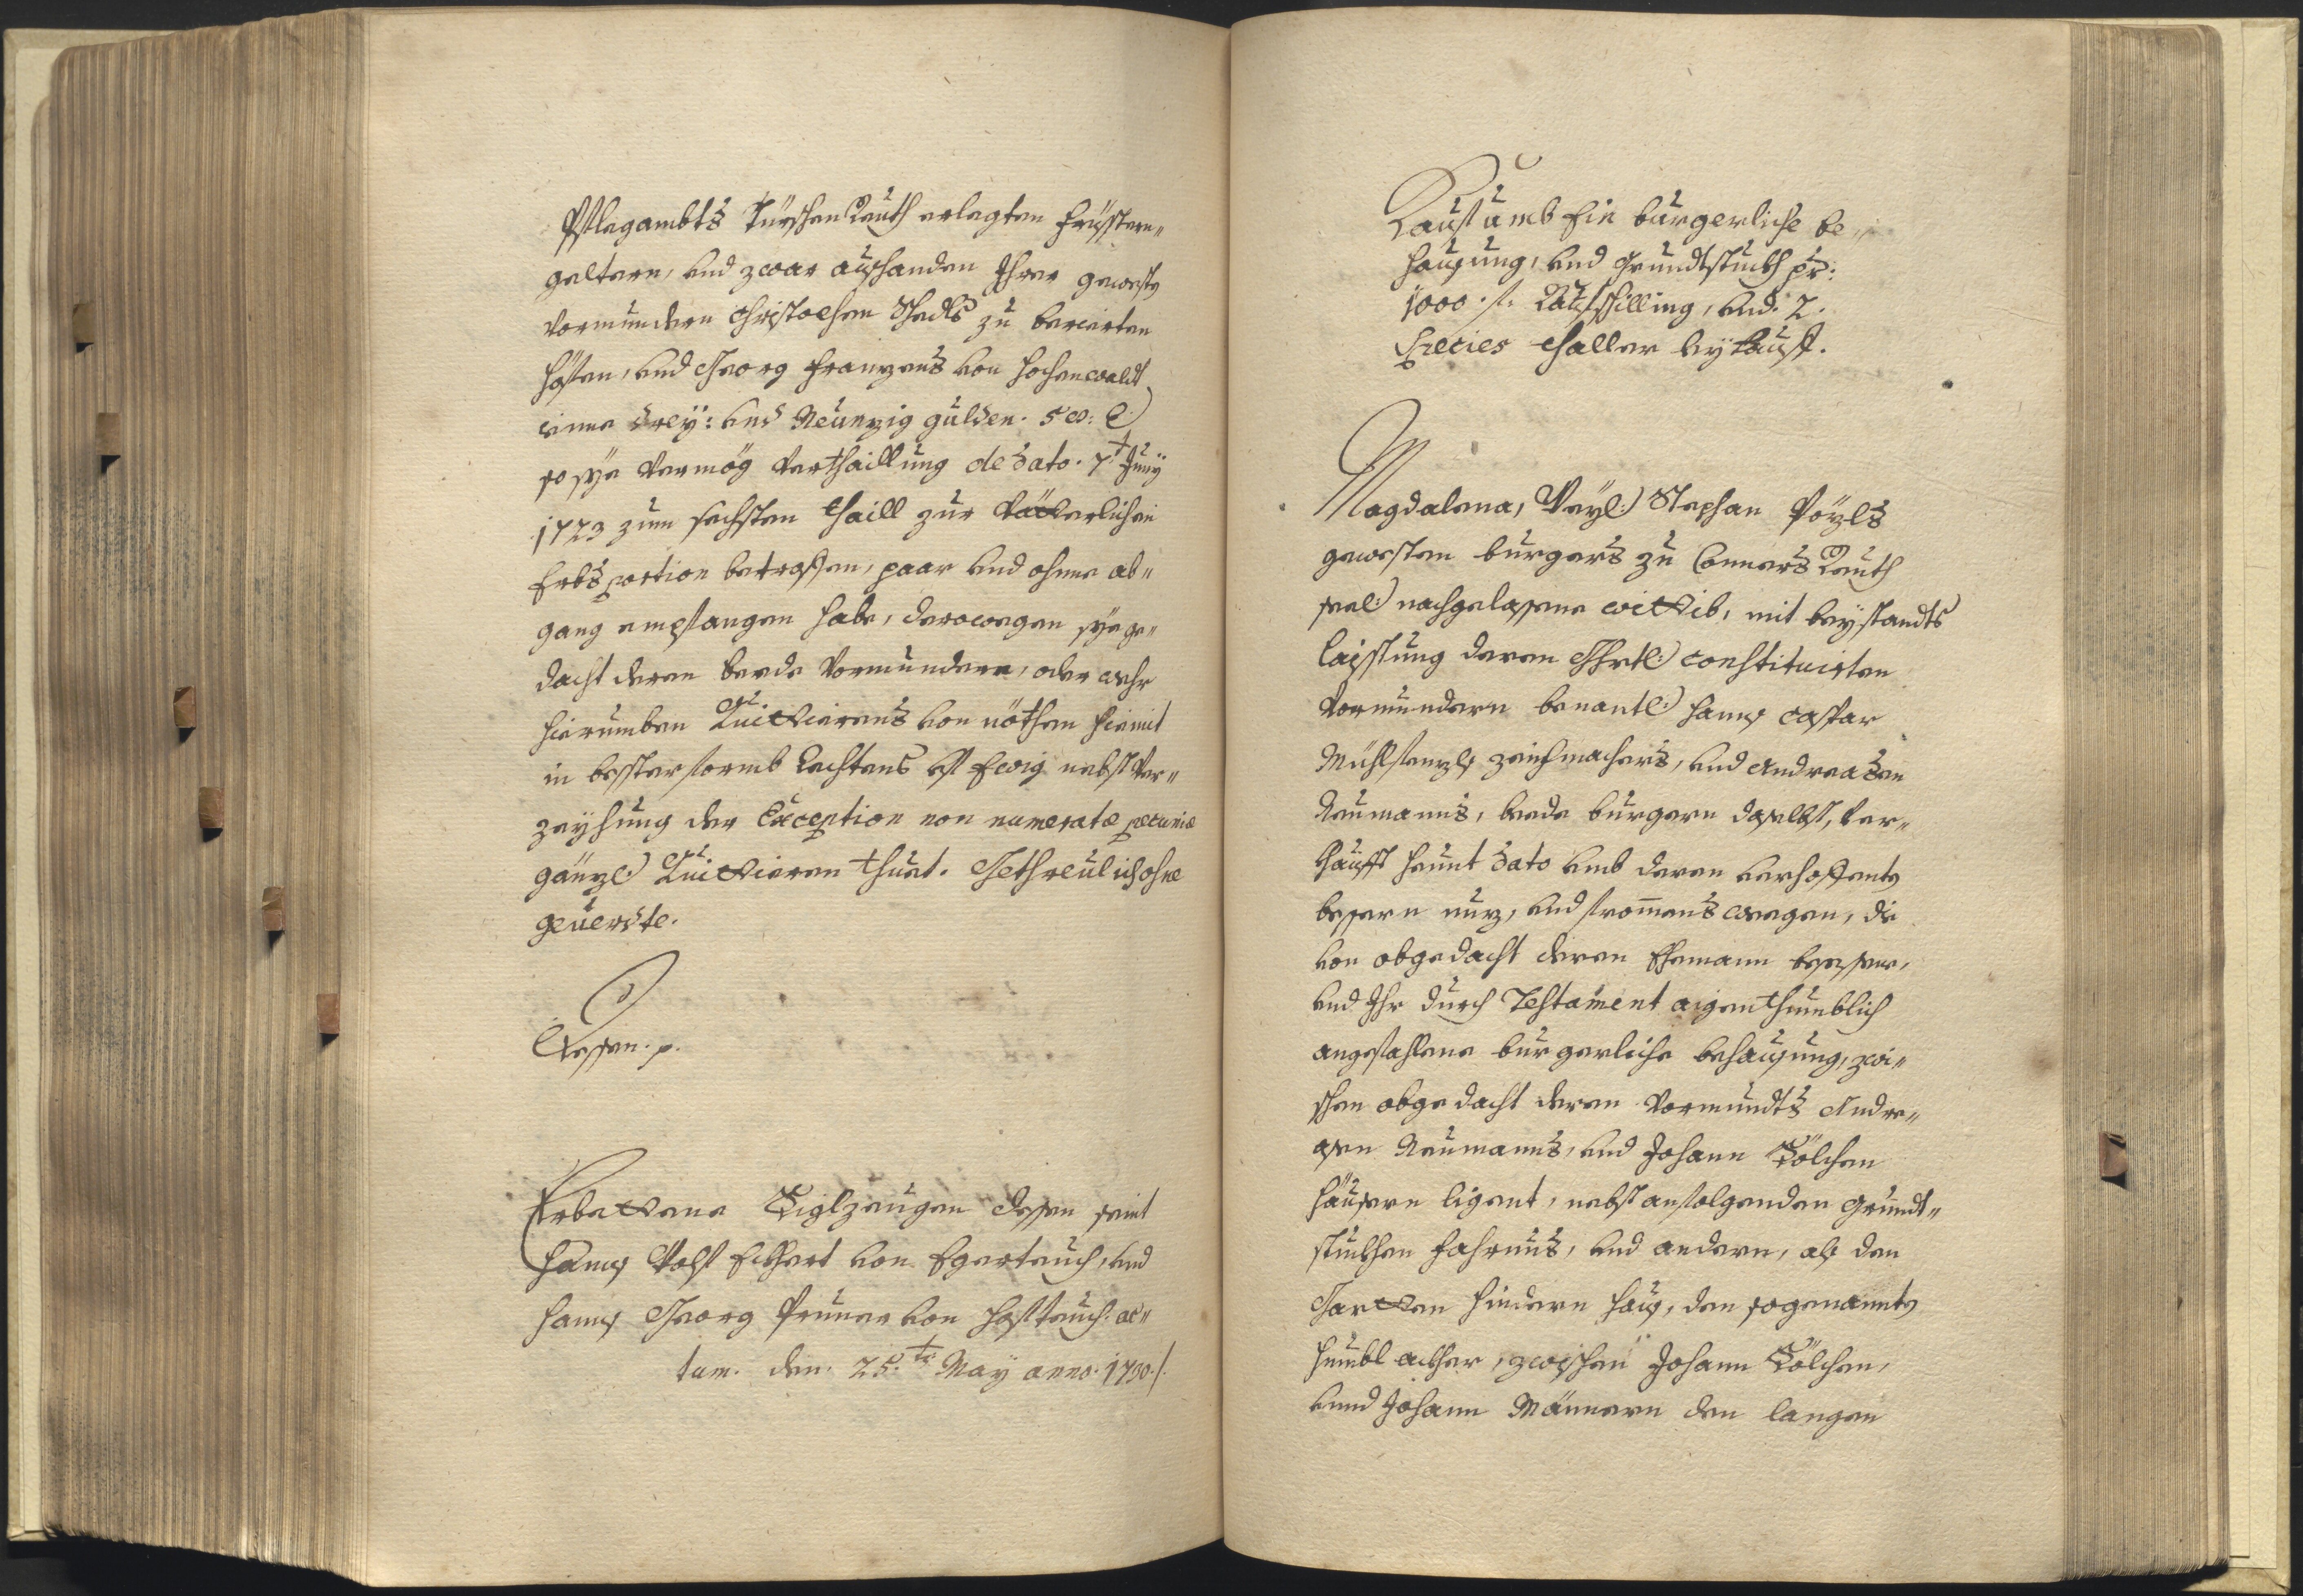 Pflegambts Türschenreuth erlegten Fristern„
geltern, und zwar außhanden Ihrer geweste
Vormundern Christophen Schedls zu
höfen, und Georg Franzens von Hochenwaldt
einne drey: und Neunzig gulden. 5 x: 
so sye Vermög Verthaillung de dato. 7t Juny
1723 zum sechsten thaill zur Vätterlichen
Erbsportion betroffen, paar und ohne ab„
gang empfangen habe, derowegen sye ge„
dacht deren beede Vormundern, oder wehr
hierumben Quittierens von nöthen hiemit
in bester formb Rechtens uf Ewig nebst Ver„
zeyhung der Exception non numeratæ pecuniæ
gänzl: Quittieren thuet. Gethreulich ohne
geuerdte.
Dessen. p.
Erbettene Siglzeugen dessen seint
Hanns Wolf Eckhert von Egerteuch, und
Hanns Georg Pruner von Hofteuch. Ac„
tum. den. 25.ten May anno. 1730./.
Kauf umb Ein burgerliche Be„
haußung, und Grundtstuckh pr:
1000. f. Kaufschilling, und. 2.
Species thaller leykauff.
Magdalena, Weyl: Stephan Pözls
gewesten burgers zu Connersreuth
seel: nachgelassene wittib, mit beystandts
laistung deren Ghrtl: constituirten
Vormundern benantl: Hanns Caspar
Mühlfenzl zeichmachers, und Andreasen
Neumanns, beede burgern daselbst, Ver„
khaufft heunt dato umb deren verhoffents
bessern nuz, und frommens weegen, die
von obgedacht deren Ehemann besessene,
und Ihr durch Testament aigenthumblich
angefahlene burgerliche behaußung, zwi„
schen obgedacht deren Vormundts Andre„
asen Neumanns, und Johann Sölchen
häusern ligent, nebst anfolgenden Grundt„
stuckhen Fahrnus, und andern, als den
Gartten hindern hauß, den sogenannte
Humbl ackher, zwischen Johann Sölchen,
unnd Johann Männern den langen